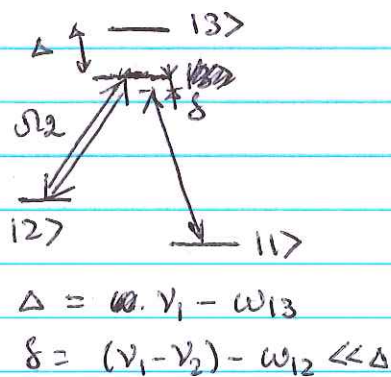 |3>
Δ
δ
Ω2
|2>
|1>
Δ = ν₁ − ω₁₃
δ = (ν₁−ν₂) − ω₁₂ << Δ